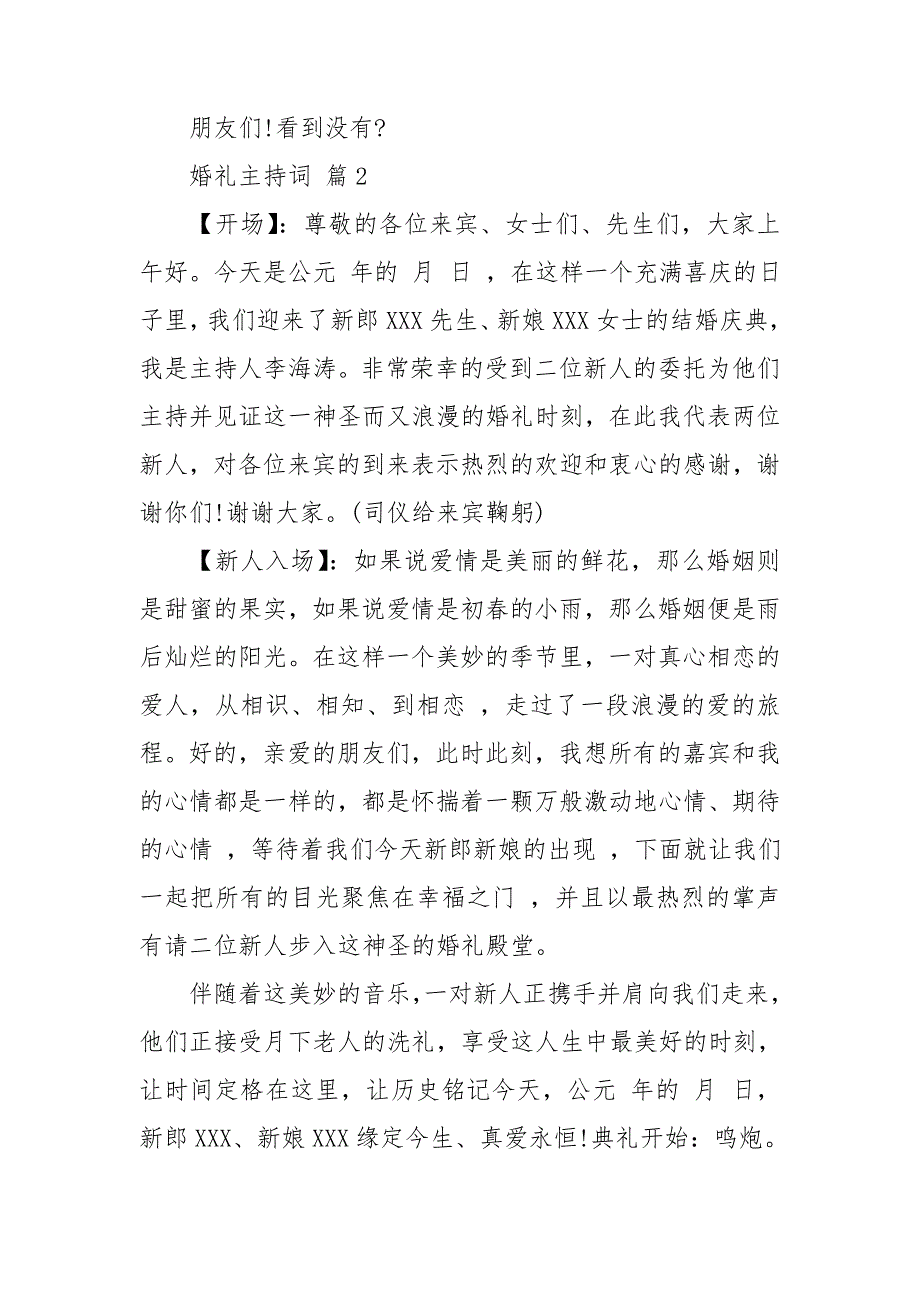 朋友们!看到没有?
婚礼主持词 篇2
【开场】：尊敬的各位来宾、女士们、先生们，大家上
午好。今天是公元 年的 月 日 ，在这样一个充满喜庆的日
子里，我们迎来了新郎XXX先生、新娘XXX女士的结婚庆典，
我是主持人李海涛。非常荣幸的受到二位新人的委托为他们
主持并见证这一神圣而又浪漫的婚礼时刻，在此我代表两位
新人，对各位来宾的到来表示热烈的欢迎和衷心的感谢，谢
谢你们!谢谢大家。(司仪给来宾鞠躬)
【新人入场】：如果说爱情是美丽的鲜花，那么婚姻则
是甜蜜的果实，如果说爱情是初春的小雨，那么婚姻便是雨
后灿烂的阳光。在这样一个美妙的季节里，一对真心相恋的
爱人，从相识、相知、到相恋 ，走过了一段浪漫的爱的旅
程。好的，亲爱的朋友们，此时此刻，我想所有的嘉宾和我
的心情都是一样的，都是怀揣着一颗万般激动地心情、期待
的心情 ，等待着我们今天新郎新娘的出现 ，下面就让我们
一起把所有的目光聚焦在幸福之门 ，并且以最热烈的掌声
有请二位新人步入这神圣的婚礼殿堂。
伴随着这美妙的音乐，一对新人正携手并肩向我们走来，
他们正接受月下老人的洗礼，享受这人生中最美好的时刻，
让时间定格在这里，让历史铭记今天，公元 年的 月 日，
新郎XXX、新娘XXX缘定今生、真爱永恒!典礼开始：鸣炮。